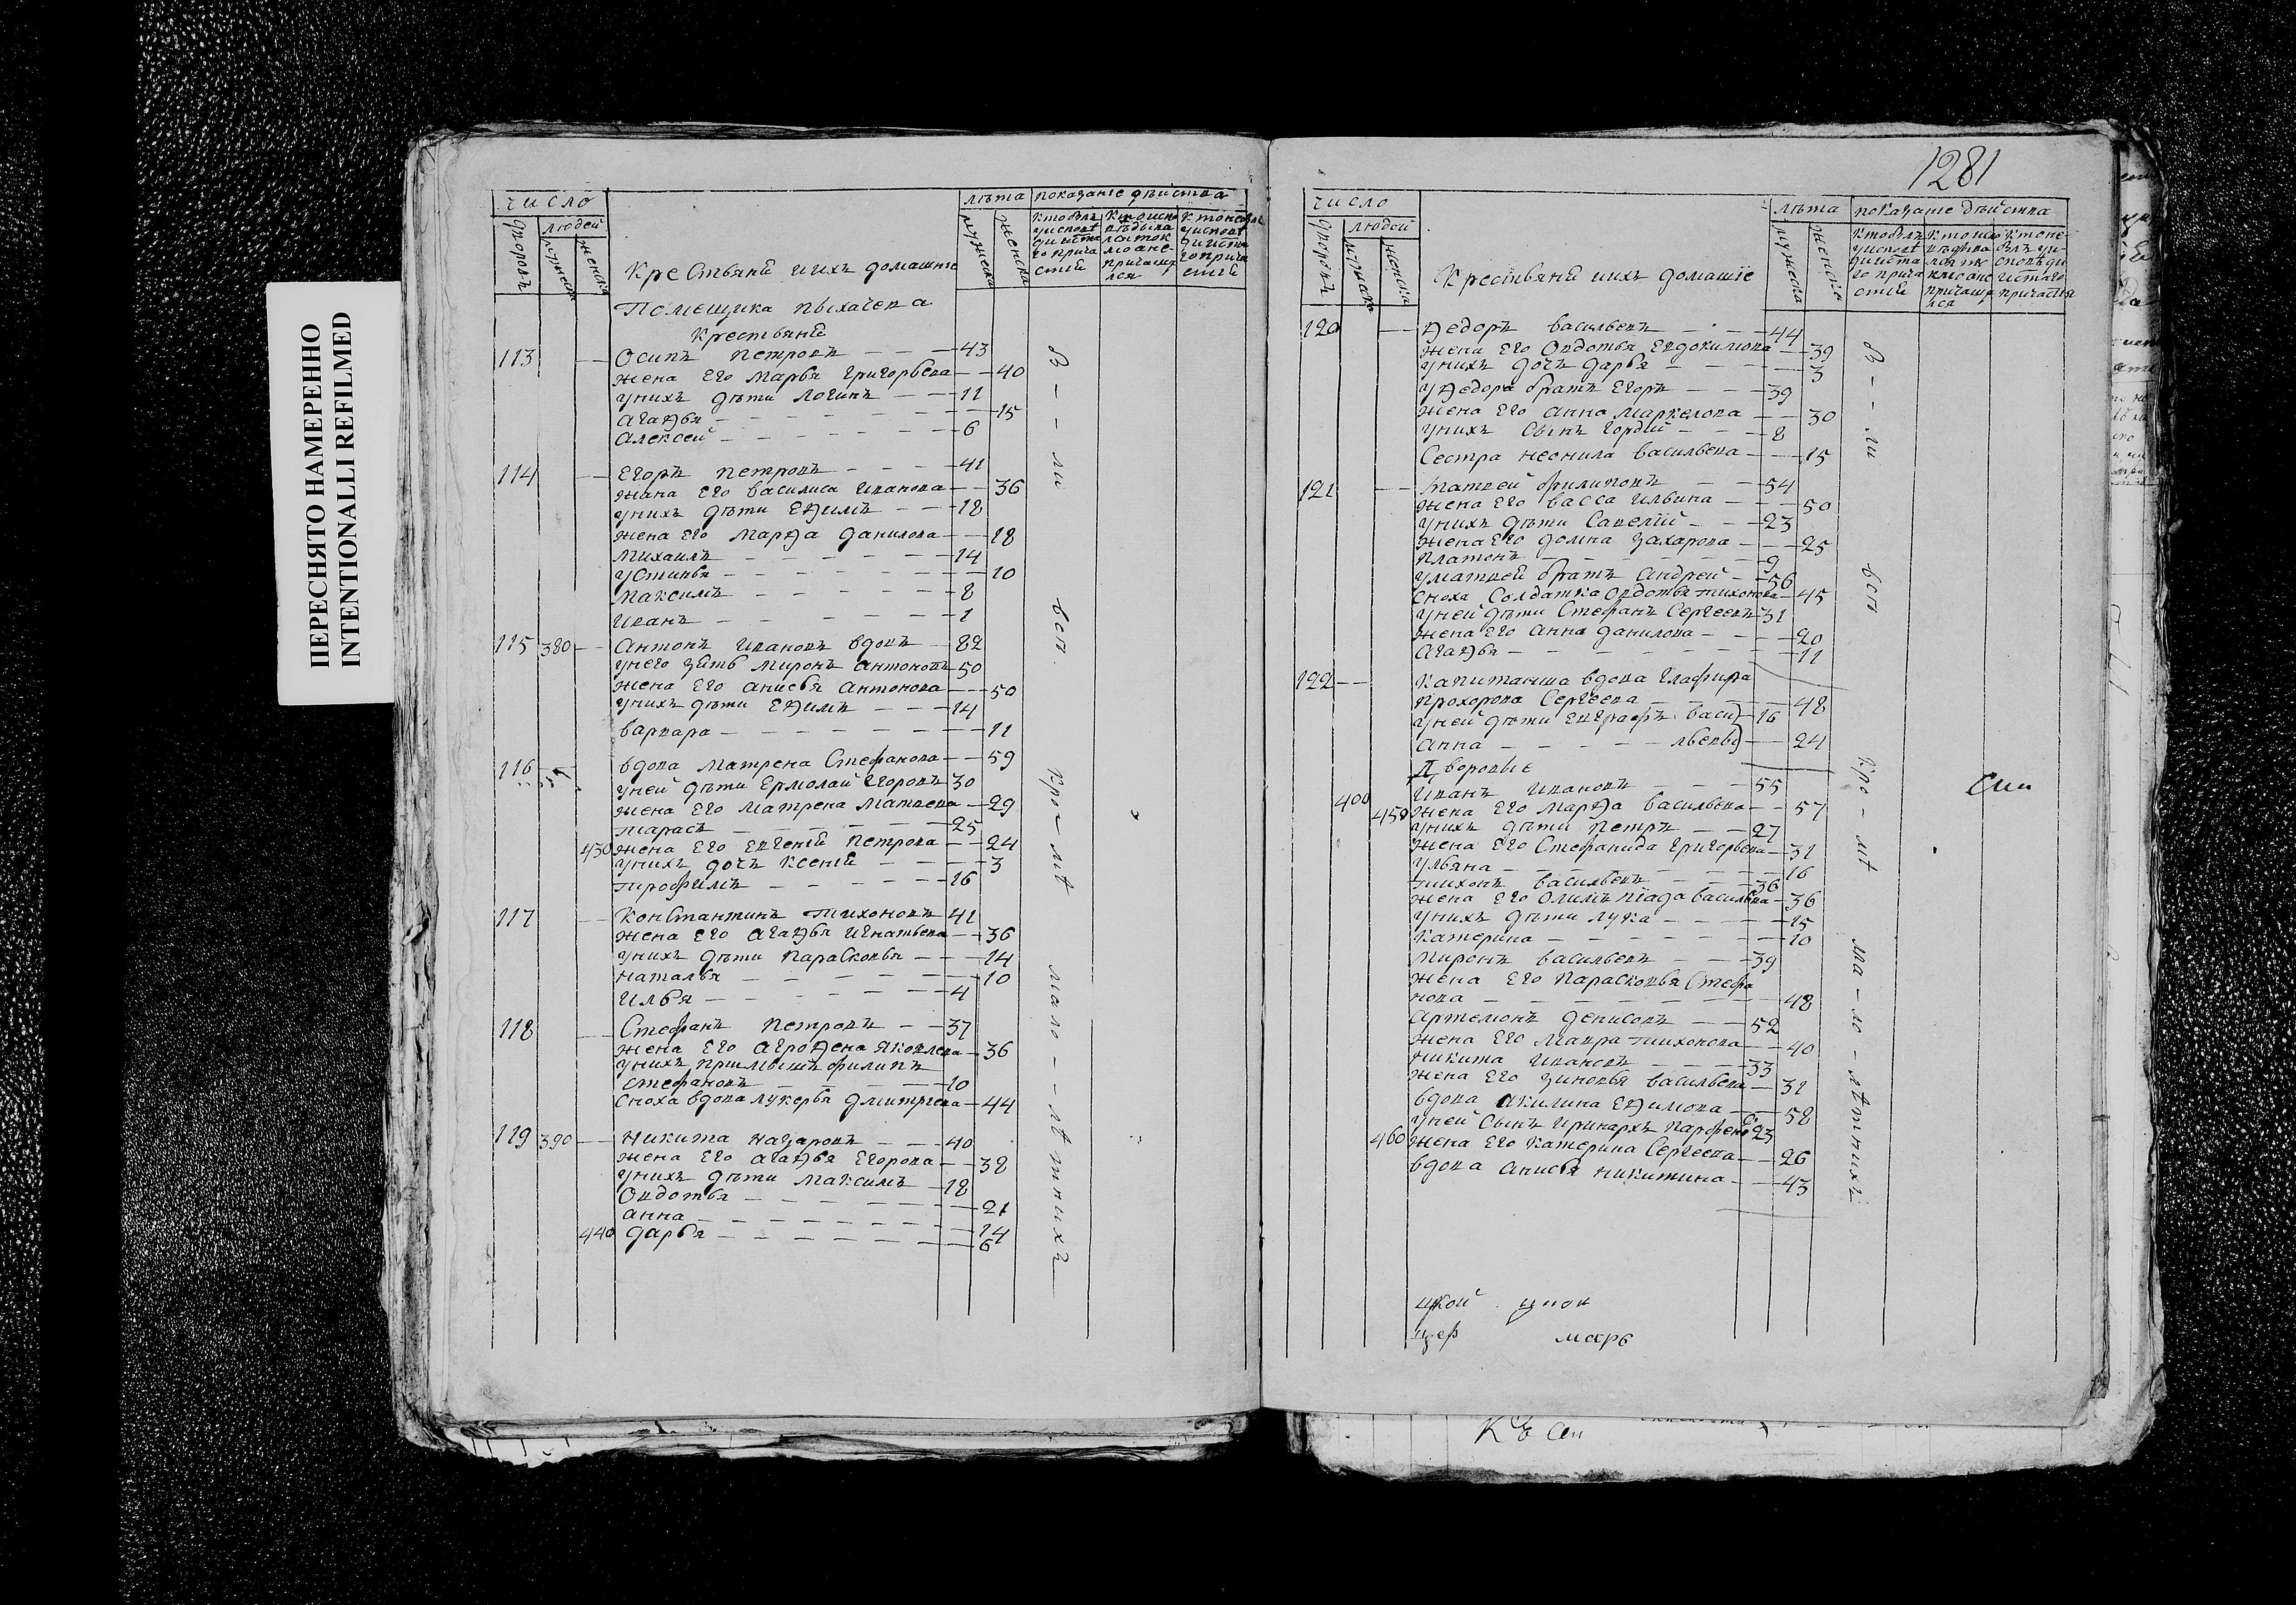 ПЕРЕСНЯТО НАМЕРЕННО
INTENTIONALLI REFILMED
число
людей
дворовъ
мужеска
женска
Крестьянй ииxъ домашнiе
лѣта
мужеска
женска
показанiе дѣиства
Помещика пыхачева
Крестьянй
113 Осипъ петровъ 43
жена его марья григорьева 40
унихъ дѣти логинъ 11
агафья 15
алексей 6
114 Егоръ петровъ 41
жена его василиса иванова 36
унихъ дѣти ефимъ 18
жена его марфа данилова 18
михаилъ 14
устинья 10
максимъ 8
иванъ 1
115 380 Антонъ ивановъ вдовъ 82
унего зять миронъ антоновъ 50
жена его анисья антонова 50
унихъ дѣти ефимъ 14
варвара 11
116 вдова матрена стефанова 59
уней дѣти ермолай егоровъ 30
жена его матрена матвева 29
тарасъ 25
430 жена его евгенiй петрова 24
унихъ дочь ксенiй 3
трофимъ 16
117 Константинъ тихоновъ 41
жена его агафья игнатьева 36
унихъ дѣти парасковья 14
наталья 10
илья 4
118 Стефанъ петровъ 37
жена его агрофена яковлева 36
унихъ приимышъ филипъ
стефановъ 10
сноха вдова лукерья дмитрева 44
119 390 Никита назаровъ 40
жена его агафья егорова 38
унихъ дѣти максимъ 18
овдотья 21
анна 14
440 дарья 6
В - - ли всп. кро - мѣ мало - лѣтнихъ
1281
число
людей
дворовъ
мужеска
женска
Крестьянй ииxъ домашiе
лѣта
мужеска
женска
показанiе дѣиства
120 Федоръ васильевъ 44
жена его овдотья евдокимова 39
унихъ дочь дарья 3
уфедора братъ егоръ 39
жена его анна маркелова 30
унихъ сынъ гордiй 8
сестра неонила васильева 15
121 матвей филиповъ 54
жена его васса ильина 50
унихъ дѣти савелiй 23
жена его домна захарова 25
платонъ 9
уматвей братъ андрей 56
сноха солдатка овдотья тихонова 45
уней дѣти стефанъ сергеевъ 31
жена его анна данилова 20
агафья 11
122 капитанша вдова глафира
прохорова сергеева 48
уней дѣти евграфъ васи) 16
анна львевы) 24
Дворовые
400 иванъ ивановъ 55
450 жена его марфа васильева 57
унихъ дѣти петръ 27
жена его стефанида григорьева 31
ульяна 16
тихонъ васильевъ 36
жена его олимпiада васильева 36
унихъ дѣти лука 15
катерина 10
миронъ васильевъ 39
жена его парасковья стефа
нова 48
артемонъ денисовъ 52
жена его мавра тихонова 40
никита ивановъ 33
жена его зиновья васильева 31
вдова акилина ефимова 58
уней сынъ иринархъ парфенов 23
460 жена его катерина сергеева 26
вдова анисья никитина 43
В - - ли всп кро - мѣ ма - ло - лѣтнихъ